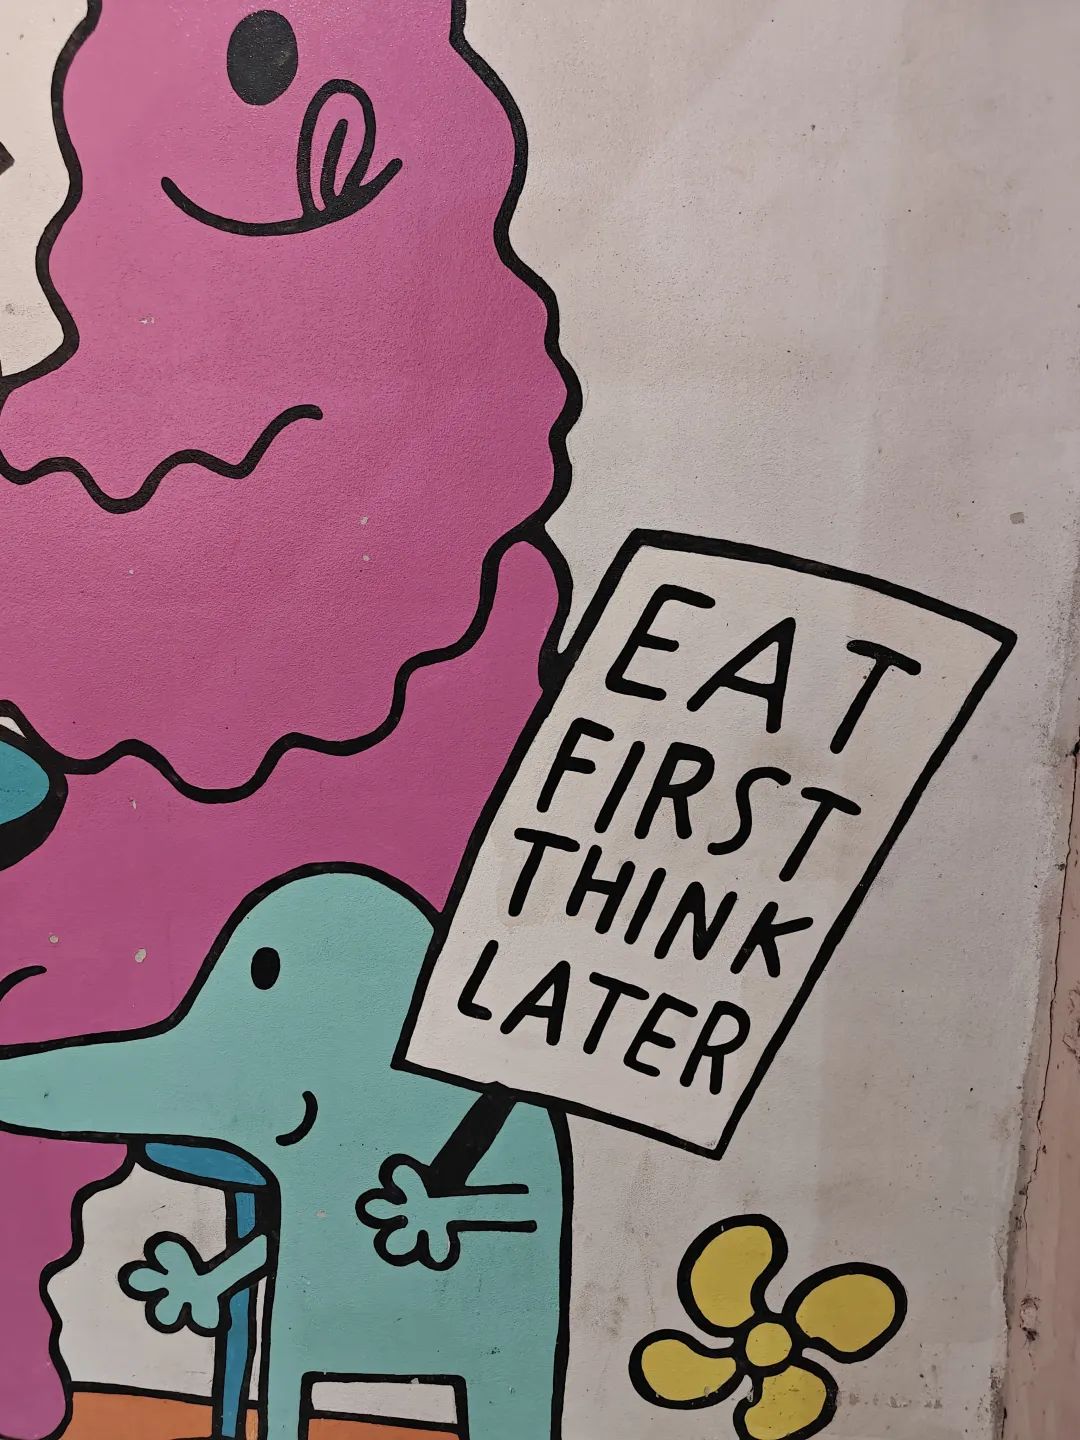 EAT
FIRST
THINK
LATER